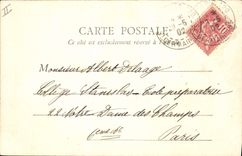 II
CARTE POSTALE
Ce côté est exclusivement réservé à l'adresse
Monsieur Albert Delage
Collège Stanislas - Ecole préparatoire
22 Notre Dame des Champs
Paris